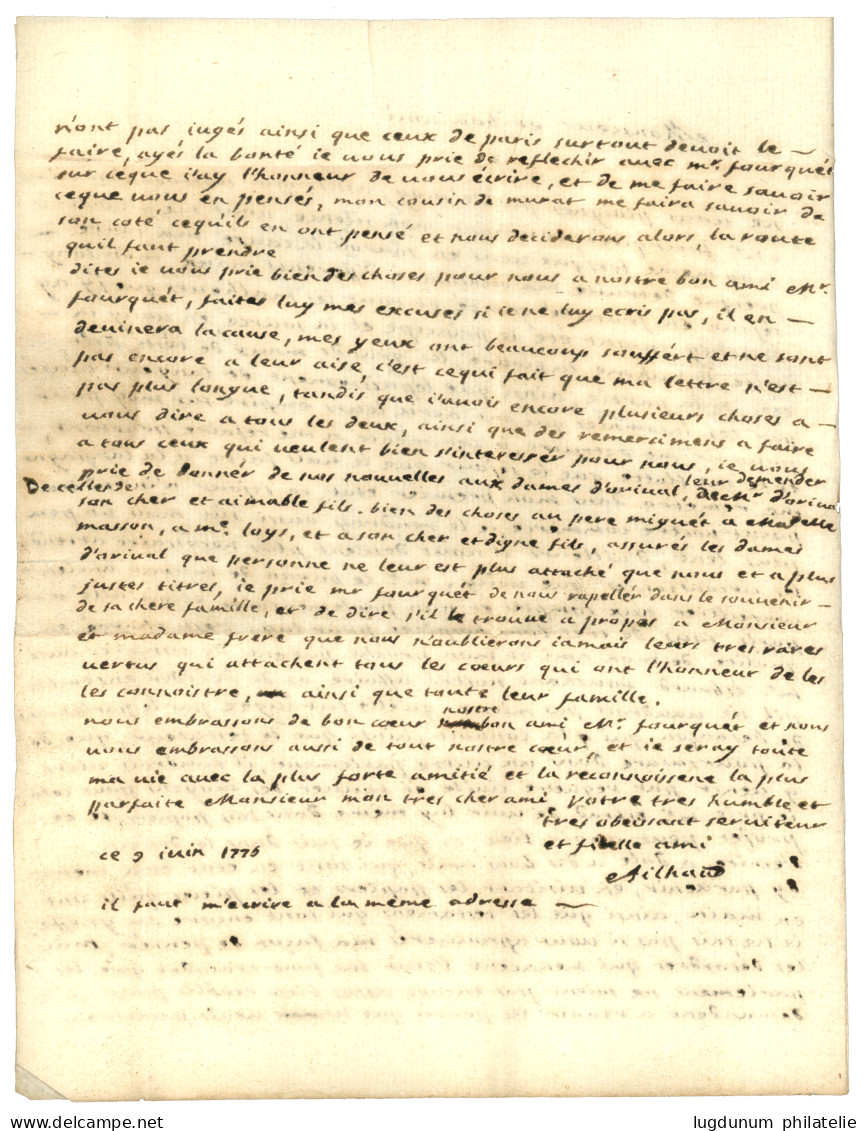 n'ont pas iugés ainsi que ceux de paris surtout devoit le —
faire, ayés la bonté ie vous prie de reflechir avec mr. fourquét
sur ceque i'ay l'honneur de vous écrire, et de me faire savoir
ceque vous en pensés, mon cousin de murat me faira savoir de
son coté cequils en ont pensé et nous deciderons alors, la route
quil faut prendre
dites ie vous prie bien des choses pour nous a nostre bon ami Mr.
fourquét, faites luy mes excuses si ie ne luy ecris pas, il en —
devinera la cause, mes yeux ont beaucoup souffért et ne sont
pas encore a leur aise, c'est cequi fait que ma lettre n'est —
pas plus longue, tandis que i'avois encore plusieurs choses a —
vous dire a tous les deux, ainsi que des remercimens a faire
a tous ceux qui veulent bien s'interessér pour nous, ie vous
prie de donnér de nos nouvelles aux dames d'orival, leur demender
De celles de Mr. d'orival
son cher et aimable fils. bien des choses au pere miguét a Madelle
masson, a mr. loys, et a son cher et digne fils, assurés les dames
d'orival que personne ne leur est plus attaché que nous et a plus
justes titres, ie prie mr fourquét de nous rapeller dans le souvenir —
de sa chere famille, et de dire s'il le trouve a propos a Monsieur
et madame frere que nous n'oublierons iamais leurs tres rares
vertus qui attachent tous les coeurs qui ont l'honneur de les
les connoistre, ainsi que touté leur famille.
nous embrassons de bon coeur nostre bon ami Mr. fourquét et nous
vous embrassons aussi de tout nostre coeur, et ie seray toute
ma vie avec la plus forte amitié et la reconnoissene la plus
parfaite Monsieur mon tres cher ami votre tres humble et
tres obeissant serviteur
et fidelle ami
ce 9 iuin 1775
Ailhaud
il faut m'ecrire a la même adresse —
lugdunum philatelie